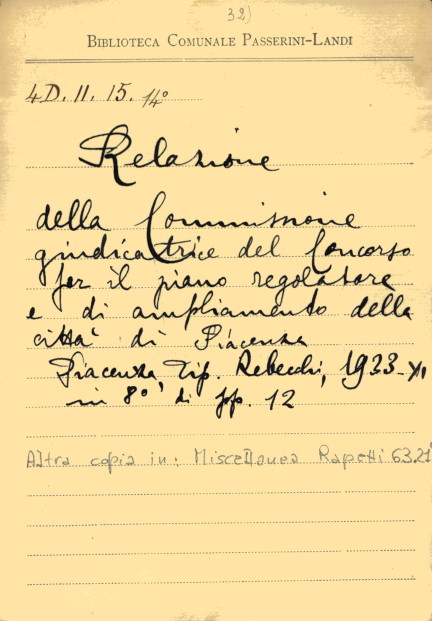 32)
BIBLIOTECA COMUNALE PASSERINI-LANDI
4D. II. 15. 14°
Relazione
della Commissione
giudicatrice del Concorso
per il piano regolatore
e di ampliamento della
città di Piacenza
Piacenza, Tip. Rebecchi, 1933-XI
in 8° di pp. 12
Altra copia in: Miscellanea Rapetti 63.21